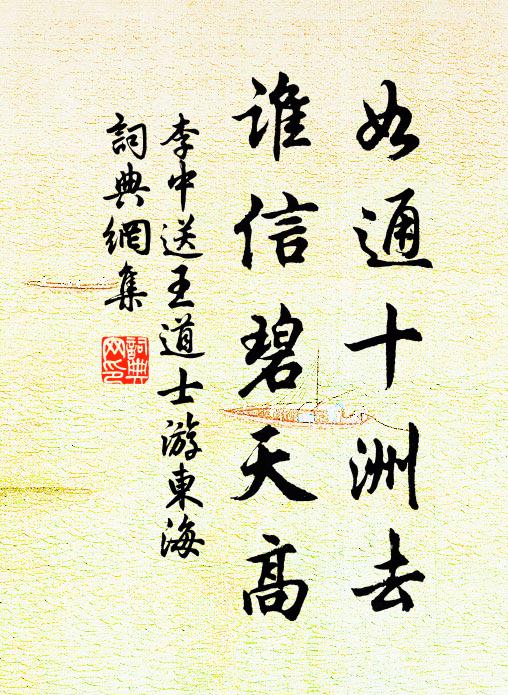 如通十洲去
誰信碧天高
李中送王道士游東海
詞典網集
詞典
网印